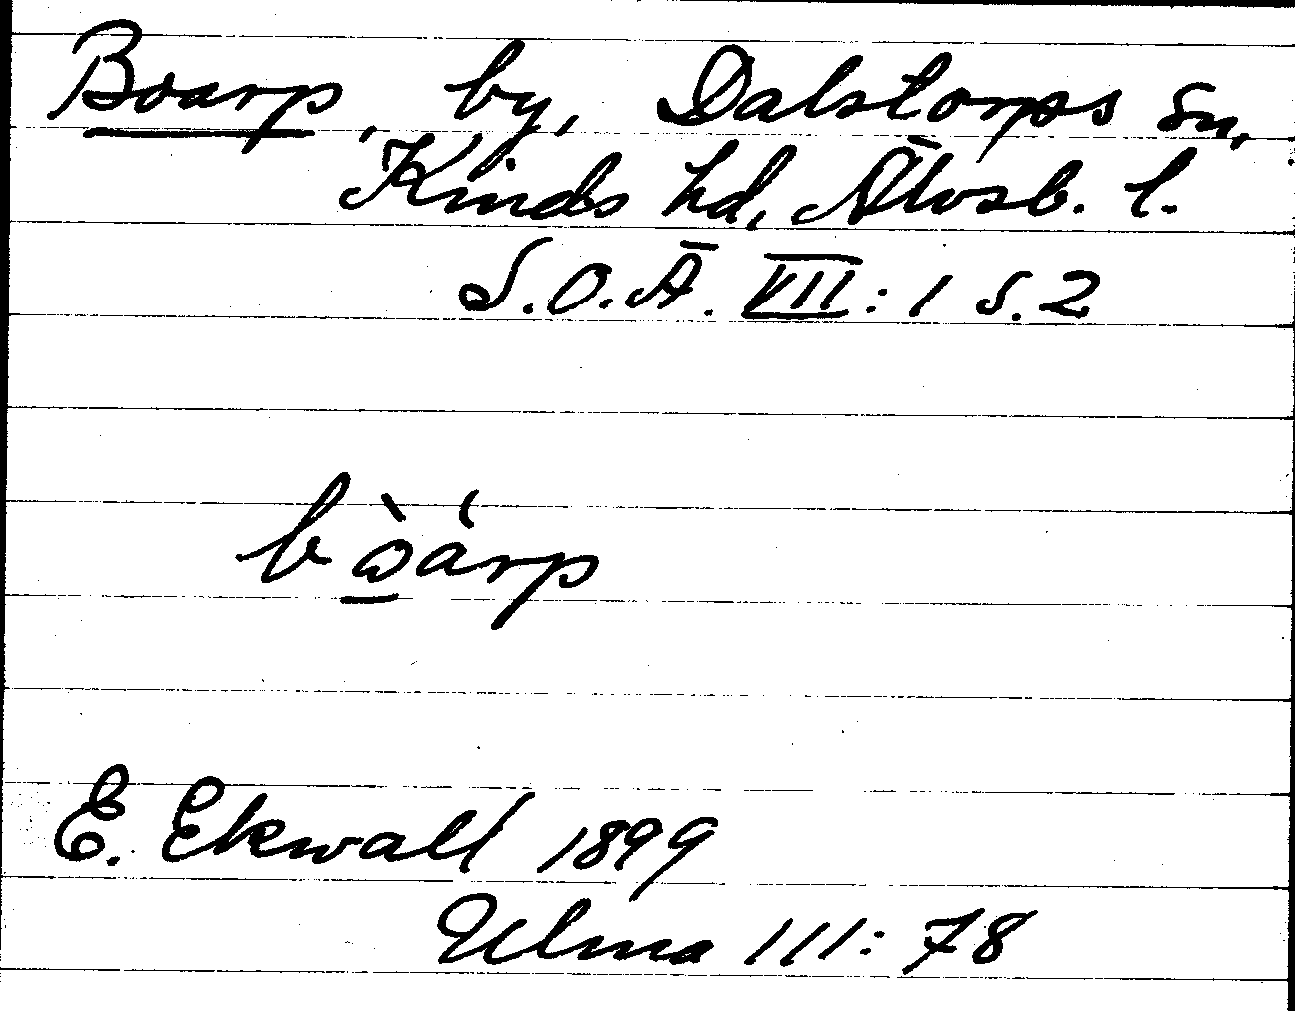 Boarp, by, Dalstorps sn,
Kinds hd, Älvsb. l.
S.O.Ä. VII: 1 s. 2
bὼ̠árp
E. Ekwall 1899
Ulma 111: 78